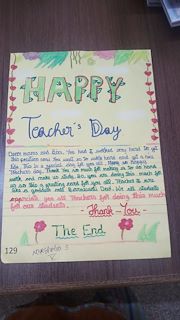 HAPPY
Teacher's Day
Dear mams and Sirs. You had worked very hard to get
this position now. You want us to work hard and get a
life. This is a special day for you all. Many so happy
Teachers day. Thank You so much for making us to do hard
work and make us study. So, you are doing this much for
us so this is greeting card for you all. Teachers are
like a goddess and God. We all students
appriciate you all Teachers for doing this much
for our students.
- Thank You -
The End
129